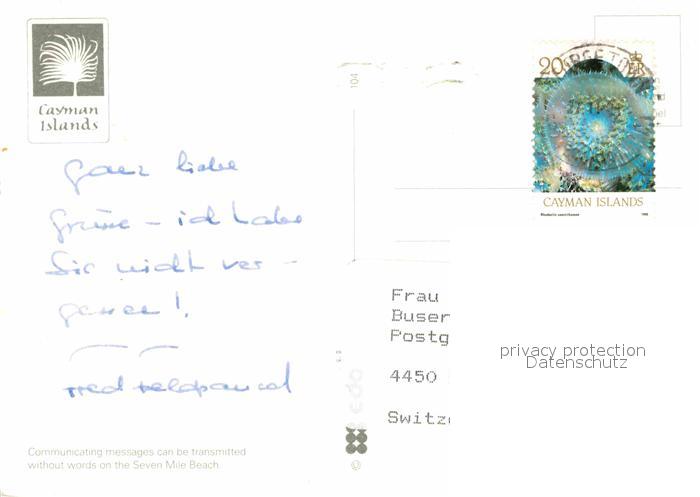 Cayman
Islands
104
20c
CAYMAN ISLANDS
ganz liebe
Grüsse – ich habe
Sie nicht ver-
gessen!
Fred
Frau
Buser
Postg
4450
Switz
privacy protection
Datenschutz
Communicating messages can be transmitted
without words on the Seven Mile Beach.
©